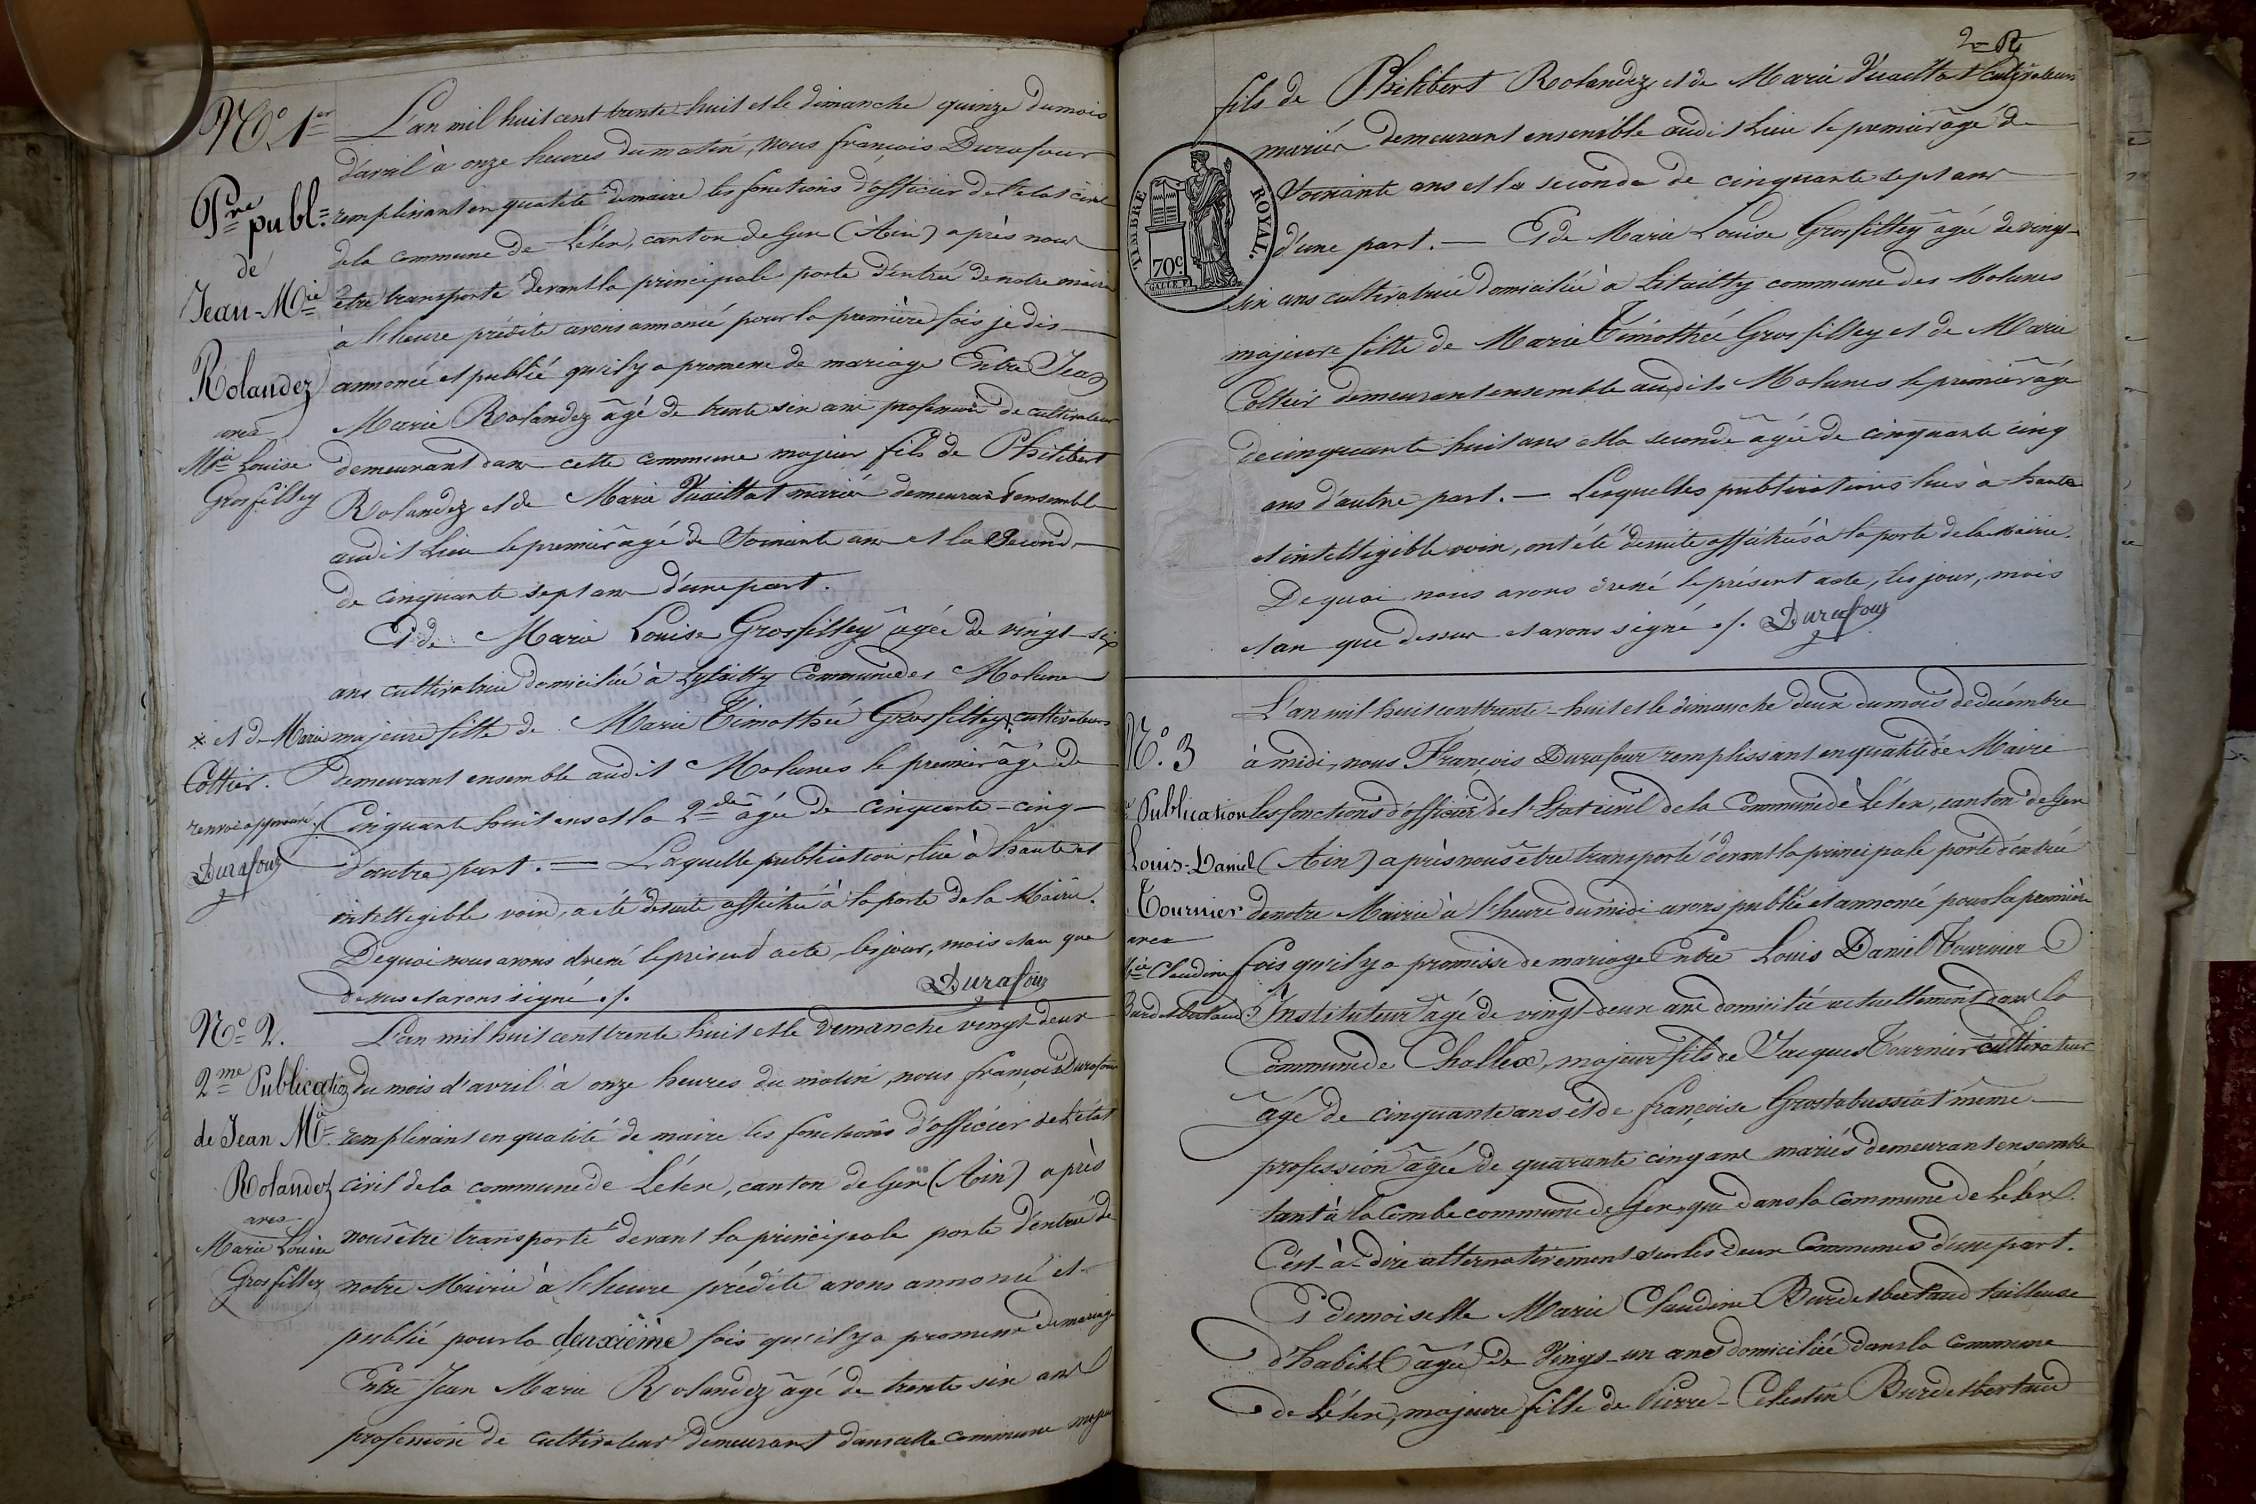 N.° 1er
Pre publ=
de
Jean-Mie
Rolandez
avec
Mie Louise
Grosfilley
L'an mil huit cent trente huit et le dimanche quinze du mois
d'avril à onze heures du matin, nous françois Durafour
remplissant en qualité de maire les fonctions d'officier de l'état civil
de la commune de Lélex, canton de Gex (Ain) après nous
être transporté devant la principale porte d'entrée de notre mairie
à l'heure prédite avons annoncé pour la première fois je dis
annoncé et publié qu'il y a promesse de mariage Entre Jean
Marie Rolandez âgé de trente six ans profession de cultivateur
demeurant dans cette commune majeur fils de Philibert
Rolandez et de Marie Vuaillat mariés demeurant ensemble
audit Lieu le premier âgé de soixante ans et la second
de cinquante sept ans d'une part.
Et de Marie Louise Grosfilley âgée de vingt-six
ans cultivatrice domiciliée à Lytaitty Commune des Molunes
majeure fille de Marie Timothée Grosfilley x cultivateurs
x et de Marie
Cottier.
renvoi approuvé
Durafour
demeurant ensemble audit Molunes le premier âgé de
Cinquante huit ans et la 2de âgée de cinquante-cinq
d'autre part. = Laquelle publication, lue à haute et
intelligible voix, a été desuite affichée à la porte de la Mairie.
De quoi nous avons dressé le présent acte, les jour, mois et an que
dessus et avons signé ./.
Durafour
N.° 2.
2me Publication
de Jean Mie
Rolandez
avec
Marie Louise
Grosfilley
L'an mil huit cent trente huit et le Dimanche vingt-deux
du mois d'avril à onze heures du matin, nous françois Durafour
remplissant en qualité de maire les fonctions d'officier de l'état
civil de la commune de Lélex, canton de Gex (Ain) après
nous être transporté devant la principale porte d'entrée de
notre Mairie à l'heure prédite avons annoncé et
publié pour la deuxième fois qu'il y a promesse de mariage
Entre Jean Marie Rolandez âgé de trente six ans
profession de cultivateur demeurant dans cette commune majeur
fils de Philibert Rolandez et de Marie Vuaillat cultivateurs
mariés demeurant ensemble audit Lieu le premier âgé de
Soixante ans et la seconde de cinquante sept ans
d'une part. — Et de Marie Louise Grosfilley âgée de vingt-
six ans cultivatrice domiciliée à Litaitty commune des Molunes
majeure fille de Marie Timothée Grosfilley et de Marie
Cottier demeurant ensemble audits Molunes le premier âgé
de cinquante huit ans et la seconde âgée de cinquante cinq
ans d'autre part. — Lesquelles publications lues à haute
et intelligible voix, ont été desuite affichées à la porte de la Mairie.
De quoi nous avons dressé le présent acte, les jour, mois
et an que dessus et avons signé ./. Durafour
TIMBRE ROYAL.
70c
N.° 3
Publication
Louis-Daniel
Tournier
avec
Mie Claudine
Burdetbertaud
L'an mil huit cent trente-huit et le dimanche deux du mois de décembre
à midi, nous François Durafour remplissant en qualité de Maire
les fonctions d'officier de l'Etat civil de la Commune de Lélex, canton de Gex
(Ain) après nous être transporté devant la principale porte d'entrée
de notre Mairie à l'heure du midi avons publié et annoncé pour la première
fois qu'il y a promesse de mariage Entre Louis Daniel Tournier
Instituteur âgé de vingt-deux ans domicilié actuellement dans la
Commune de Challex, majeur fils de Jacques Tournier cultivateur
âgé de cinquante ans et de françoise Grostabussiat même
profession âgée de quarante cinq ans mariés demeurant ensemble
tant à la Combe commune de Gex, que dans la Commune de Lélex.
C'est-à-dire alternativement sur les deux Communes d'une part.
Et demoiselle Marie Claudine Burdetbertaud tailleuse
d'habits âgée de Vingt-un ans domiciliée dans la commune
de Lélex, majeure fille de Pierre-Célestin Burdetbertaud